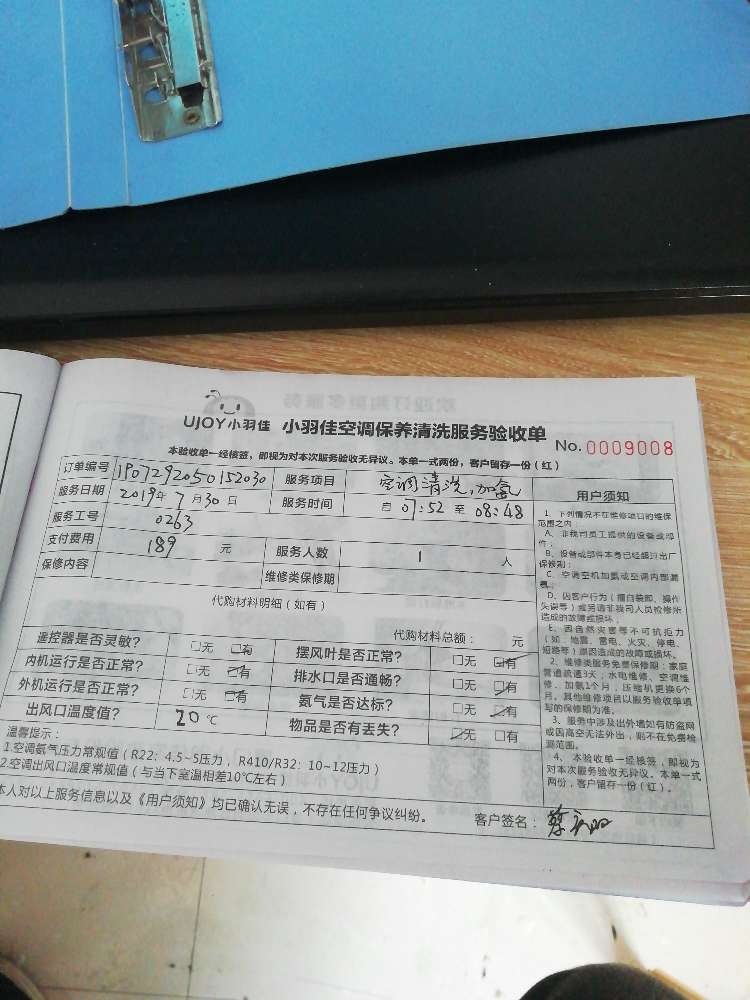 UJOY小羽佳 小羽佳空调保养清洗服务验收单 No. 0009008
本验收单一经核签，即视为对本次服务验收无异议。本单一式两份，客户留存一份（红）
订单编号 1907292050152030 服务项目 空调清洗，加氨
服务日期 2019年7月30日 服务时间 自 07:52 至 08:48
服务工号 0263
支付费用 189 元 服务人数 1 人
保修内容 维修类保修期
代购材料明细（如有）
代购材料总额： 元
遥控器是否灵敏？ □无 □有 摆风叶是否正常？ □无 □有
内机运行是否正常？ □无 □有 排水口是否通畅？ □无 □有
外机运行是否正常？ □无 □有 氨气是否达标？ □无 □有
出风口温度值？ 20 ℃ 物品是否有丢失？ □无 □有
温馨提示：
1.空调氨气压力常规值（R22：4.5~5压力，R410/R32：10~12压力）
2.空调出风口温度常规值（与当下室温相差10℃左右）
本人对以上服务信息以及《用户须知》均已确认无误，不存在任何争议纠纷。
客户签名：
用户须知
1、下列情况不在维修项目的维保
范围之内
A、非我司员工提供的设备或部
件；
B、设备或部件本身已经超过出厂
保修期；
C、空调空机加氨或空调内部漏
氨；
D、因客户行为（擅自装卸、操作
失误等）或另请非我司人员检修所
造成的故障或损坏。
E、因自然灾害等不可抗拒力
（如：地震、雷电、火灾、停电、
短路等）原因造成的故障或损坏。
2、维修类服务免费保修期：家庭
管道疏通3天；水电维修、空调维
修、加氨1个月，压缩机更换6个
月。其他维修项目以服务验收单填
写的保修期为准。
3、服务中涉及出外墙如有防盗网
或因高空无法外出，则不在免费检
测范围。
4、本验收单一经核签，即视为
对本次服务验收无异议。本单一式
两份，客户留存一份（红）。